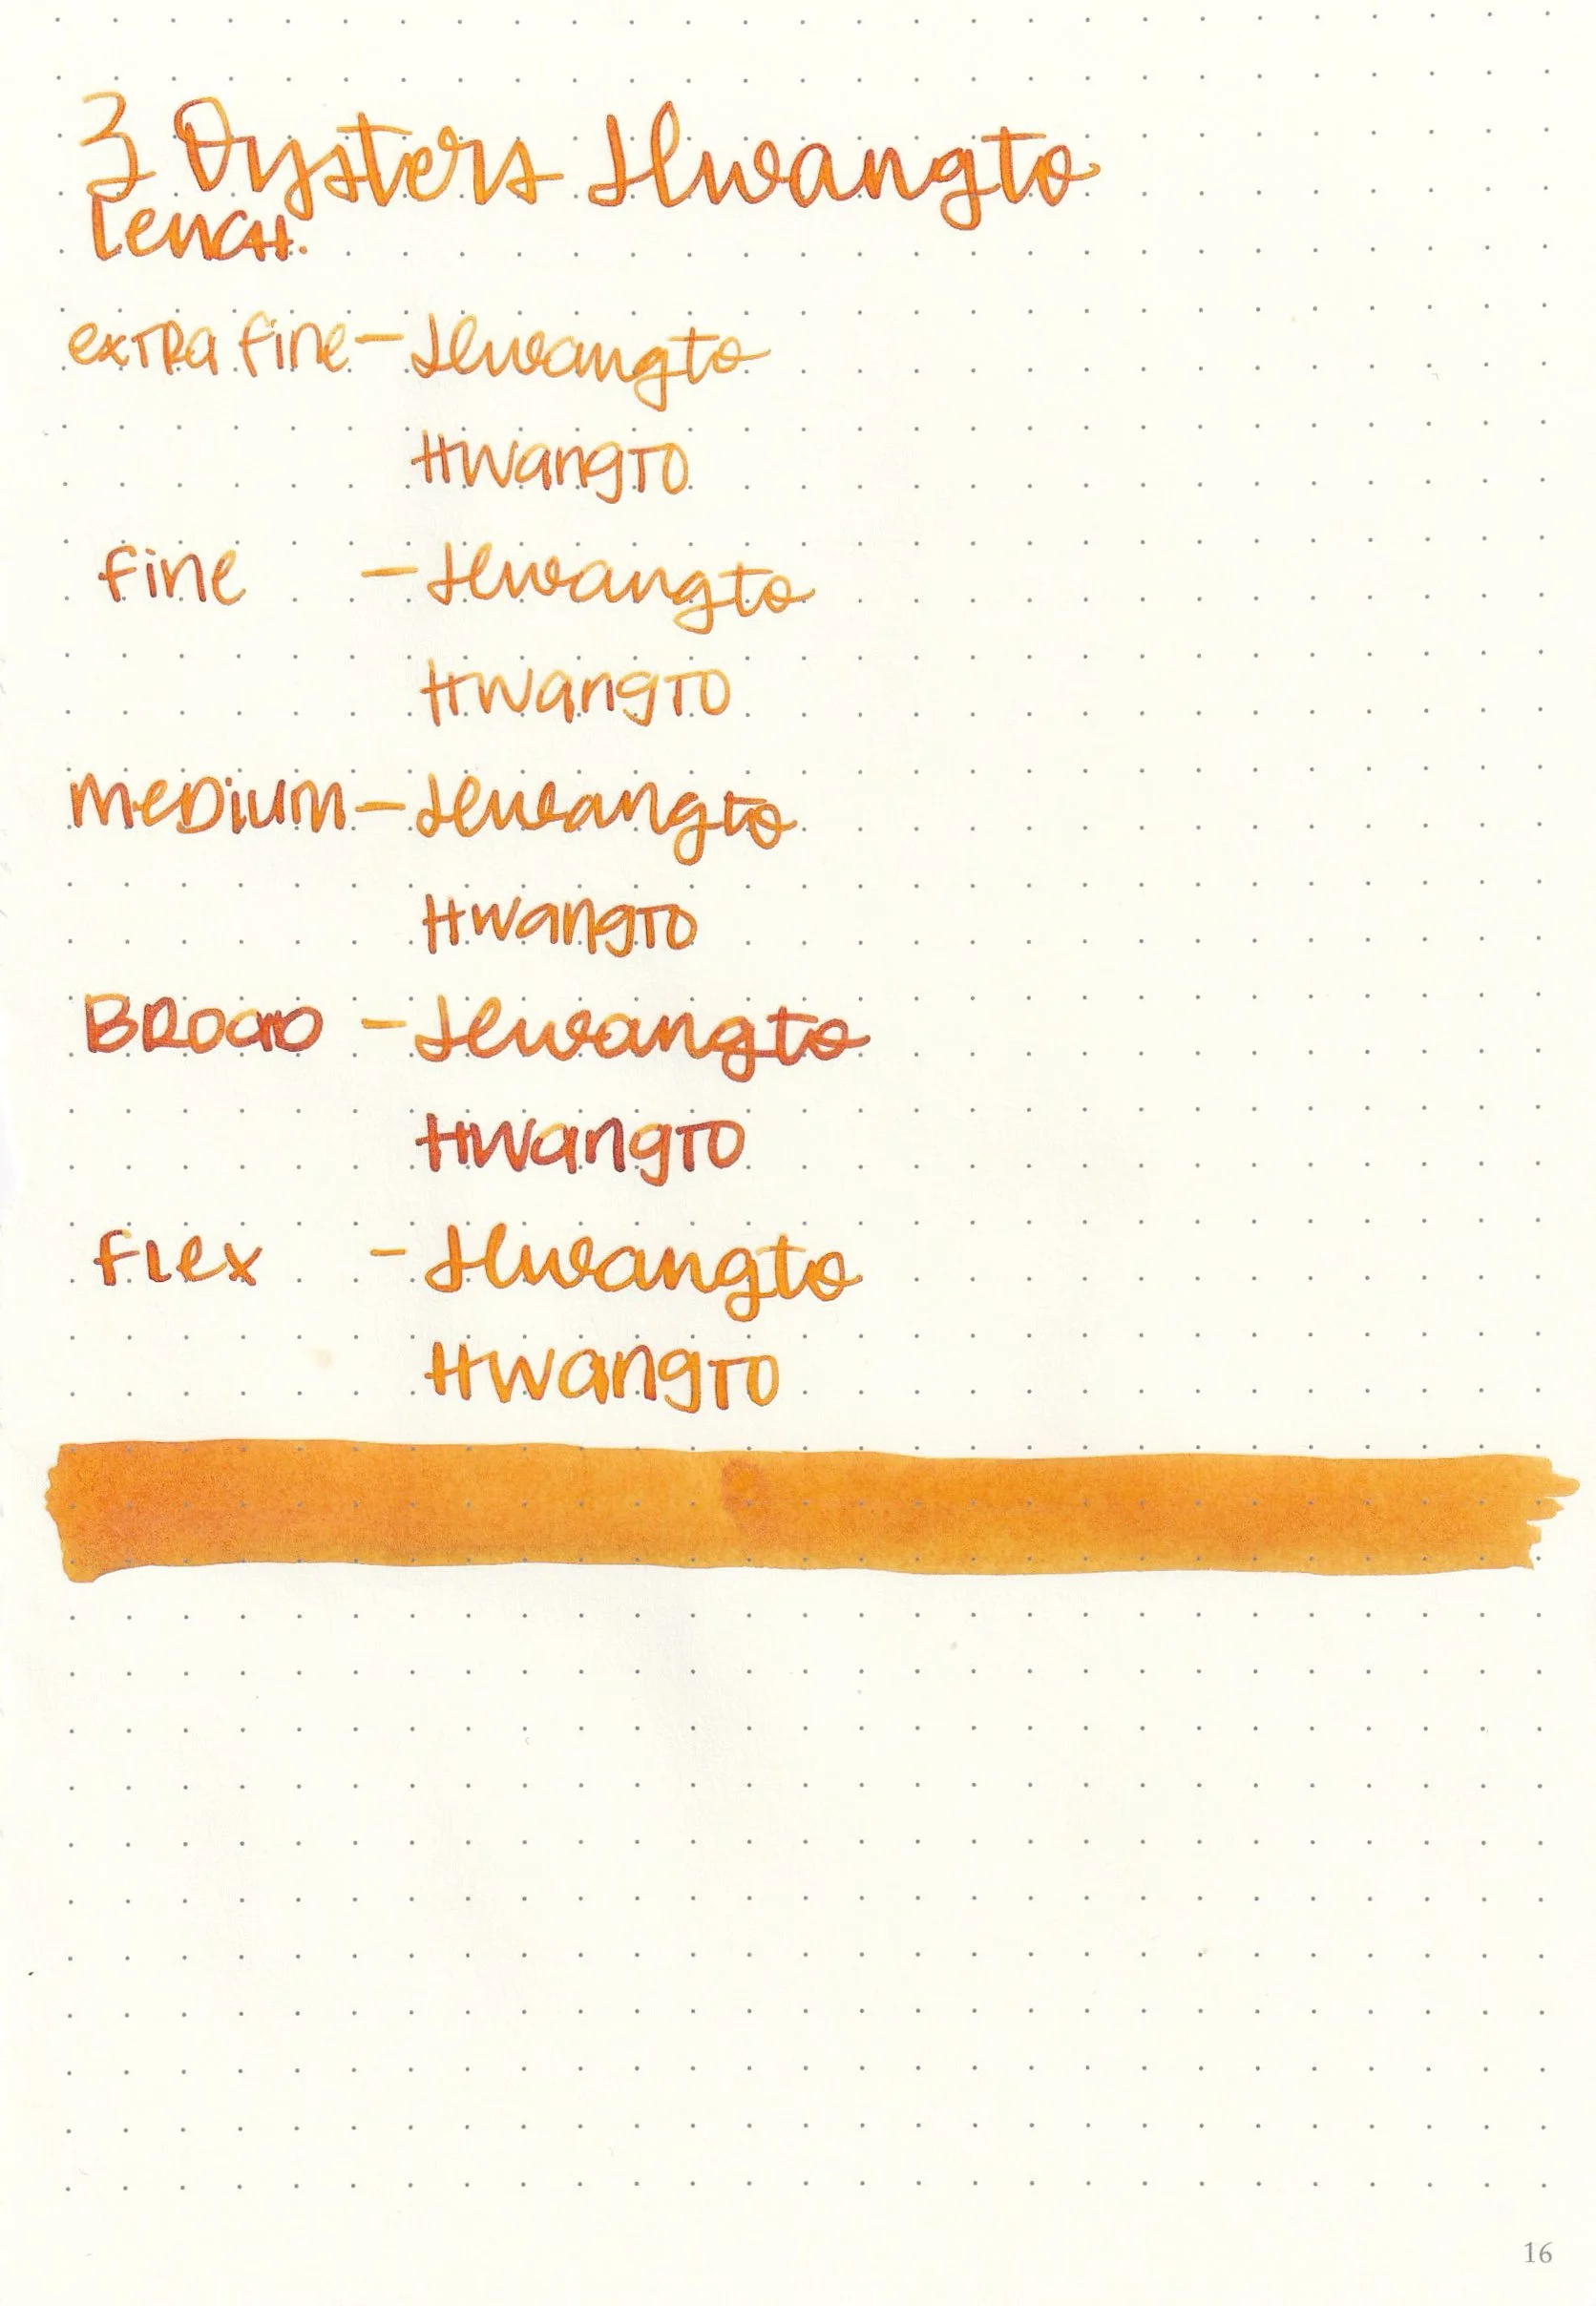 3 Oysters Hwangto
Leuch.
extra fine - Hwangto
Hwangto
fine - Hwangto
Hwangto
medium - Hwangto
Hwangto
Broad - Hwangto
Hwangto
flex - Hwangto
Hwangto
16